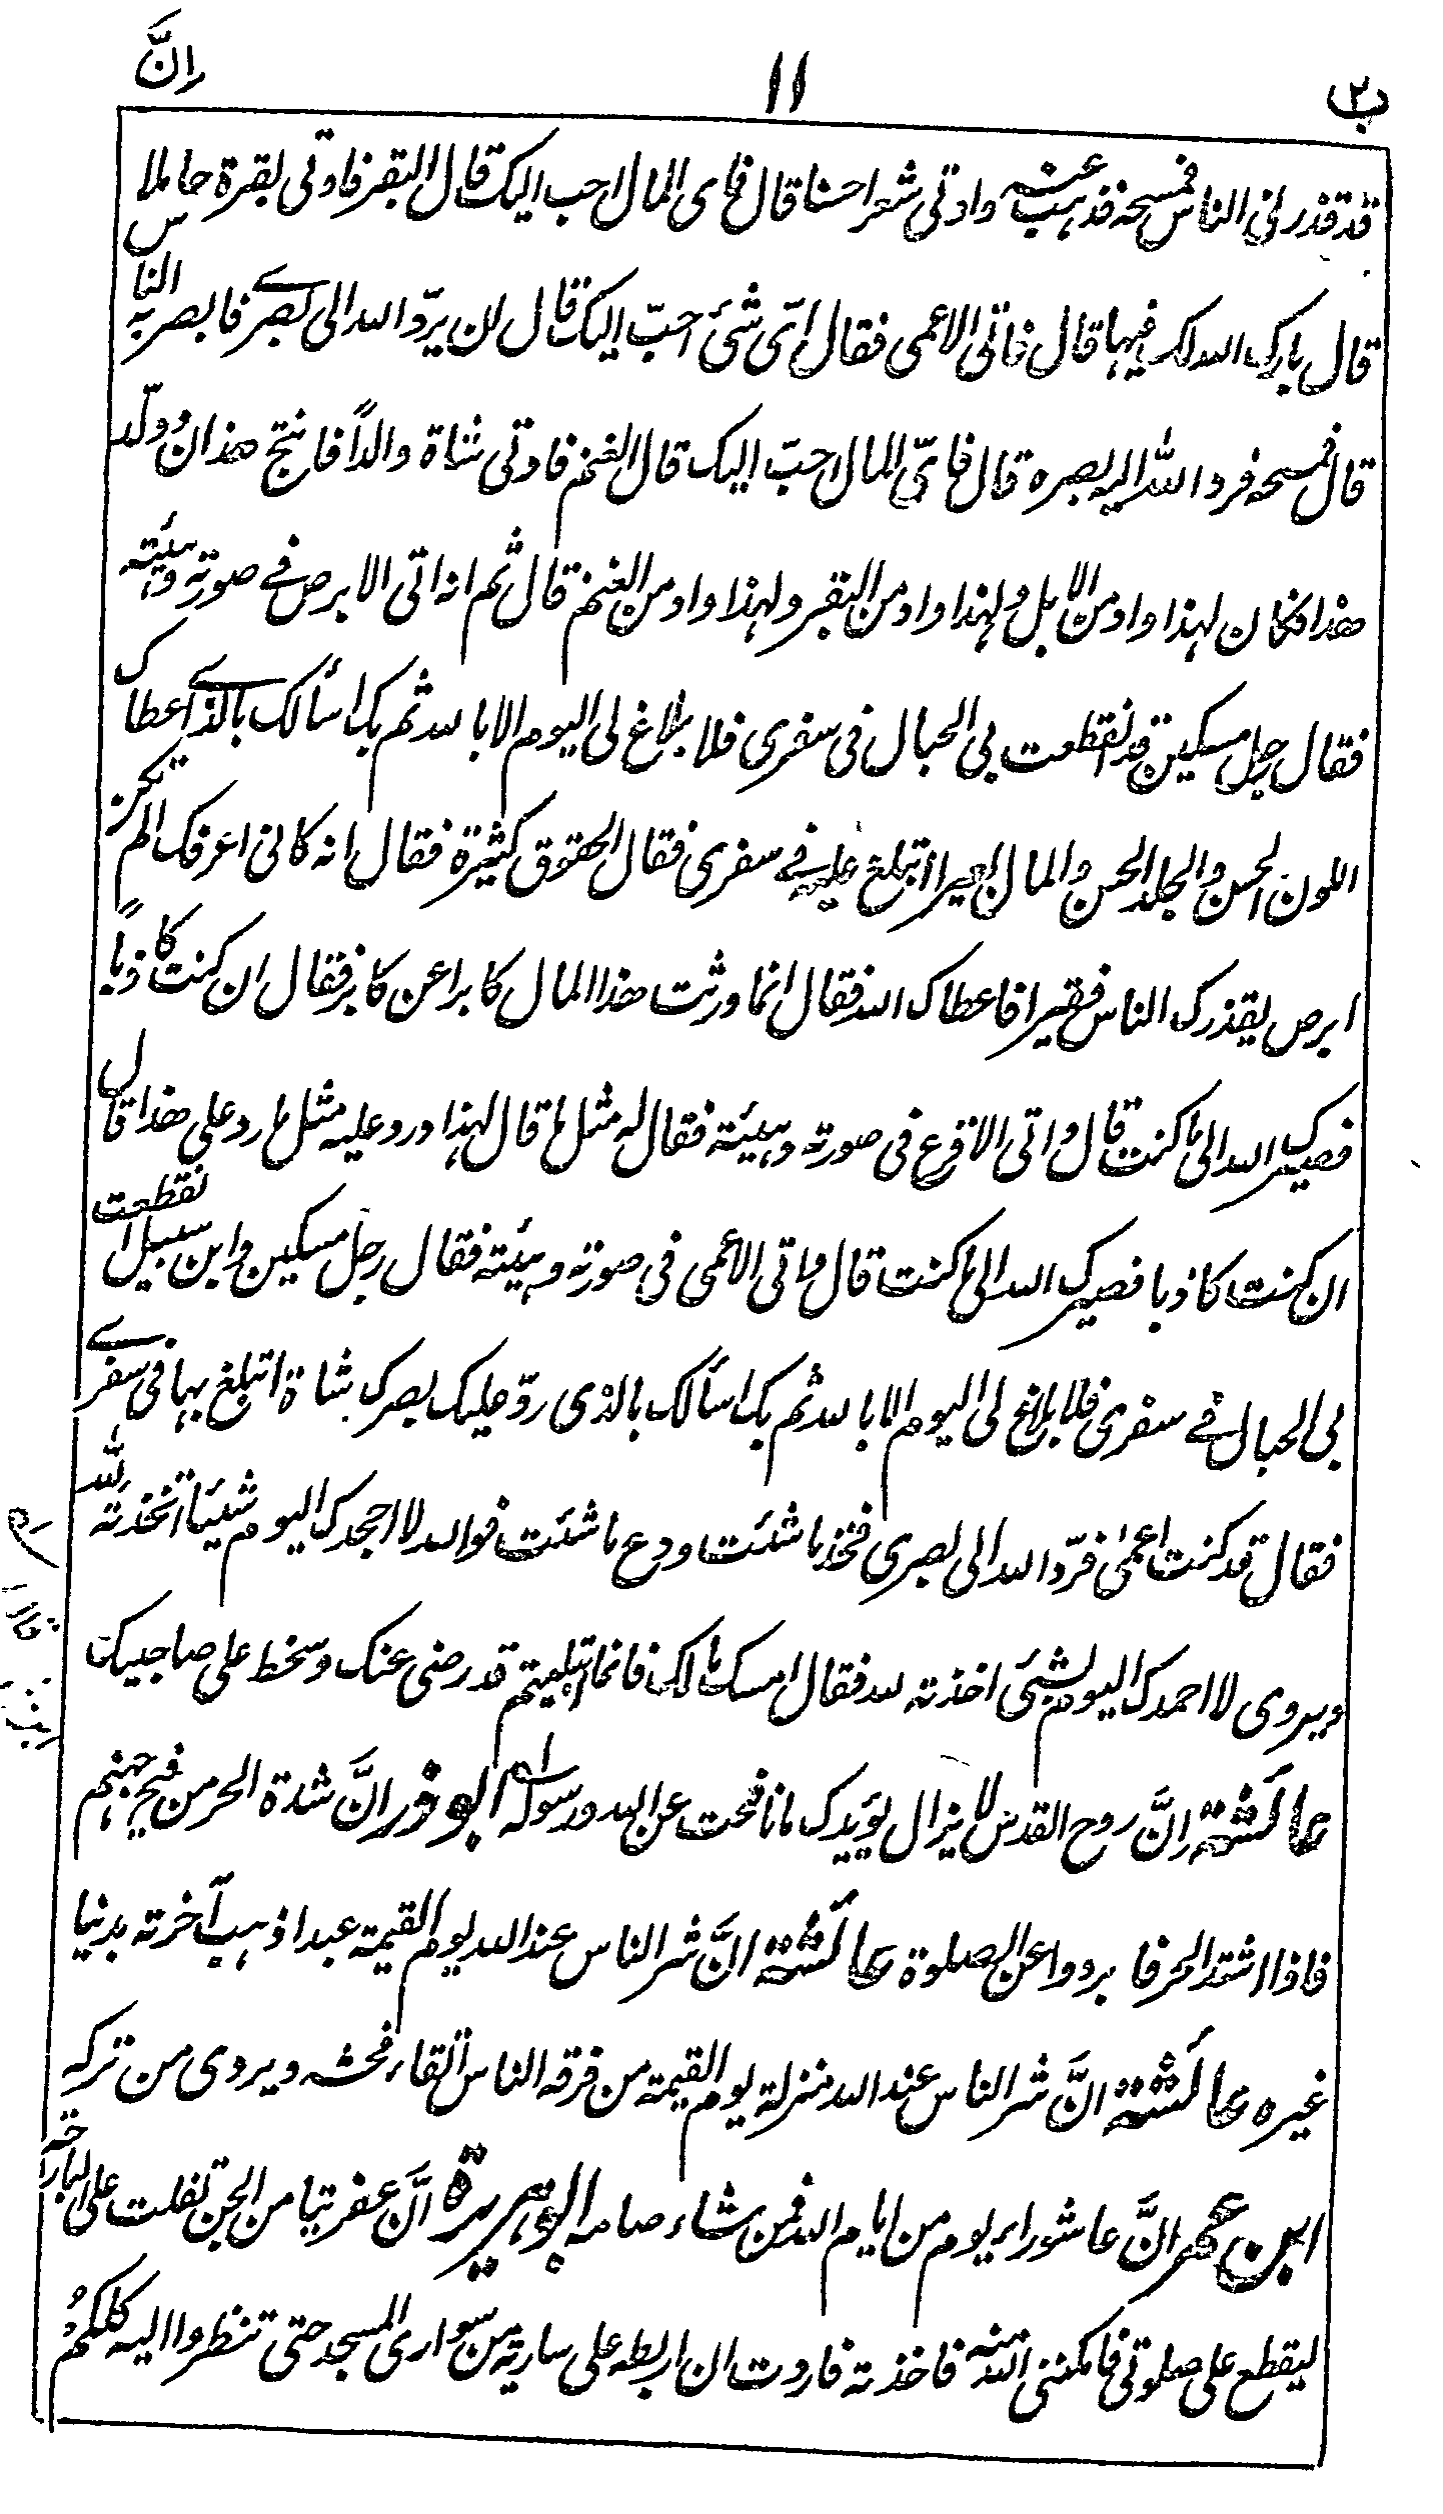 ب۲ ١١ اِنَّ
قد قذرنی الناس فمسحه فذهب عنه واوتی شعرا حسنا قال فای المال احب الیک قال البقر فاوتی بقرة حاملا
قال بارک الله لک فیها قال فاتی الاعمی فقال ایّ شیٔ احبّ الیک قال ان یردّ الله الی بصرے فابصر به الناس
قال فمسحه فرد الله الیه بصره قال فایّ المال احبّ الیک قال الغنم فاوتی شاة والداً فانتج هذان وولّد
هذا فکان لهذا واد من الابل ولهذا واد من البقر ولهذا واد من الغنم قال ثم انه اتی الابرص فے صورته وهیئته
فقال رجل مسکین قد انقطعت بی الحبال فی سفری فلا بلاغ لی الیوم الا بالله ثم بک اسألک بالذے اعطاک
اللون الحسن والجلد الحسن والمال بعیرا اتبلغ علیه فے سفری فقال الحقوق کثیرة فقال انه کانی اعرفک الم تکن
ابرص یقذرک الناس فقیرا فاعطاک الله فقال انما ورثت هذا المال کابرا عن کابر فقال ان کنت کاذباً
فصیرک الله الی ما کنت قال واتی الاقرع فی صورته وهیئته فقال له مثل ما قال لهذا ورد علیه مثل ما رد علی هذا قال
ان کنت کاذبا فصیرک الله الی ما کنت قال واتی الاعمی فی صورته وهیئته فقال رجل مسکین وابن سبیل انقطعت
بی الحبال فے سفری فلا بلاغ لی الیوم الا بالله ثم بک اسألک بالذی ردّ علیک بصرک شاة اتبلغ بها فی سفرے
فقال قد کنت اعمیٰ فردّ الله الی بصری فخذ ما شئت ودع ما شئت فوالله لا اجهدک الیوم شیئا اتخذته لله
ویروی لا احمدک الیوم لشیٔ اخذته لله فقال امسک مالک فانما ابتلیتم قد رضی عنک وسخط علی صاحبیک
عائشة اِنَّ روح القدس لا یزال یؤیدک ما نافحت عن الله ورسوله ابوذر انَّ شدة الحر من فیح جهنم
فاذا اشتد الحر فابردوا عن الصلوة عائشة انَّ شر الناس عند الله یوم القیمة عبد اذهب آخرته بدنیا
غیره عائشة انَّ شر الناس عند الله منزلة یوم القیمة من فرقه الناس اتقاء فحشه ویروی من ترکه
ابن عمر انَّ عاشوراء یوم من ایام الله فمن شاء صامه ابوهریرة انَّ عفریتا من الجن تفلت علی البارحة
لیقطع علی صلوتی فامکننی الله منه فاخذته فاردت ان اربطه علی ساریة من سواری المسجد حتی تنظروا الیه کلکم